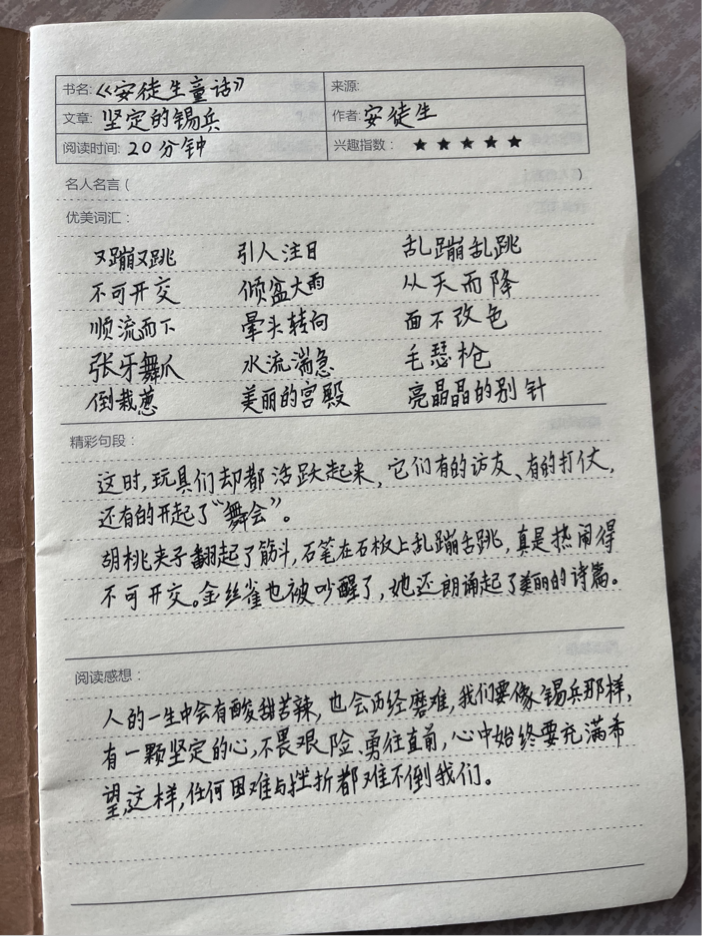 书名：《安徒生童话》 来源：
文章：坚定的锡兵 作者：安徒生
阅读时间：20分钟 兴趣指数：★★★★★
名人名言（ ）
优美词汇：
又蹦又跳 引人注目 乱蹦乱跳
不可开交 倾盆大雨 从天而降
顺流而下 晕头转向 面不改色
张牙舞爪 水流湍急 毛瑟枪
倒栽葱 美丽的宫殿 亮晶晶的别针
精彩句段：
这时，玩具们却都活跃起来，它们有的访友、有的打仗，
还有的开起了“舞会”。
胡桃夹子翻起了筋斗，石笔在石板上乱蹦乱跳，真是热闹得
不可开交。金丝雀也被吵醒了，她还朗诵起了美丽的诗篇。
阅读感想：
人的一生中会有酸甜苦辣，也会历经磨难，我们要像锡兵那样，
有一颗坚定的心，不畏艰险、勇往直前，心中始终要充满希
望，这样，任何困难与挫折都难不倒我们。